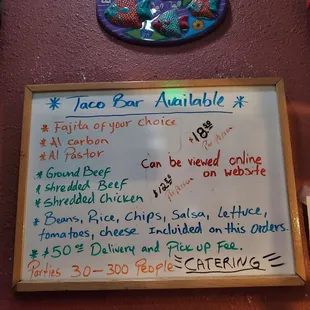 * Taco Bar Available *
* Fajita of your choice
* Al carbon
* Al Pastor
$18.50 Per Person
Can be viewed online
on website
* Ground Beef
* Shredded Beef
* Shredded Chicken
$12.50 Per Person
* Beans, Rice, Chips, Salsa, Lettuce,
tomatoes, cheese Included on this Orders.
* $50.00 Delivery and Pick up Fee.
Parties 30-300 People CATERING